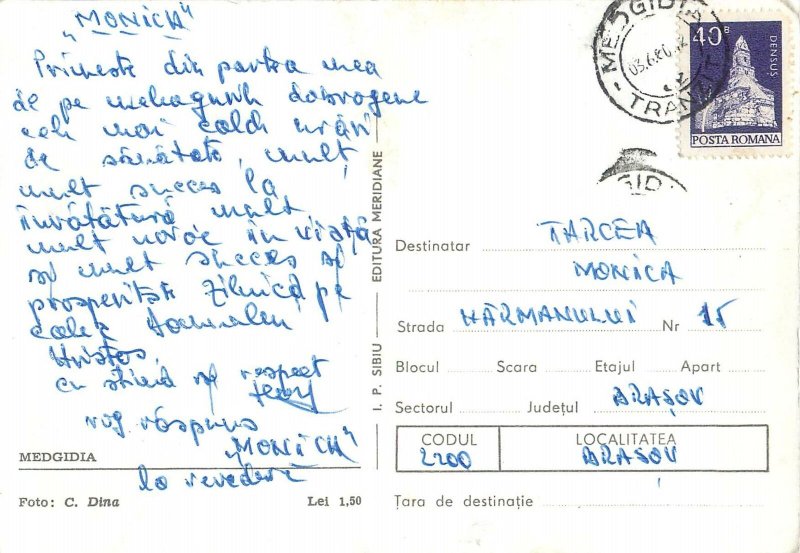 „MONICA"
Primește din partea mea
de pe meleagurile dobrogene
cele mai calde urări
de sănătate, mult,
mult succes la
învățătură mult
mult noroc în viață
și mult succes și
prosperitate zilnică pe
calea Domnului
Hristos,
cu stimă și respect
rog răspuns
„MONICA"
la revedere
MEDGIDIA
Foto: C. Dina
Lei 1,50
I. P. SIBIU — EDITURA MERIDIANE
MEDGIDIA
03.6.80.12
TRANZIT
GIDI
40B
DENSUȘ
POSTA ROMANA
Destinatar TARCEA
MONICA
Strada HĂRMANULUI Nr 15
Blocul Scara Etajul Apart
Sectorul Județul BRAȘOV
CODUL LOCALITATEA
2200 BRAȘOV
Țara de destinație